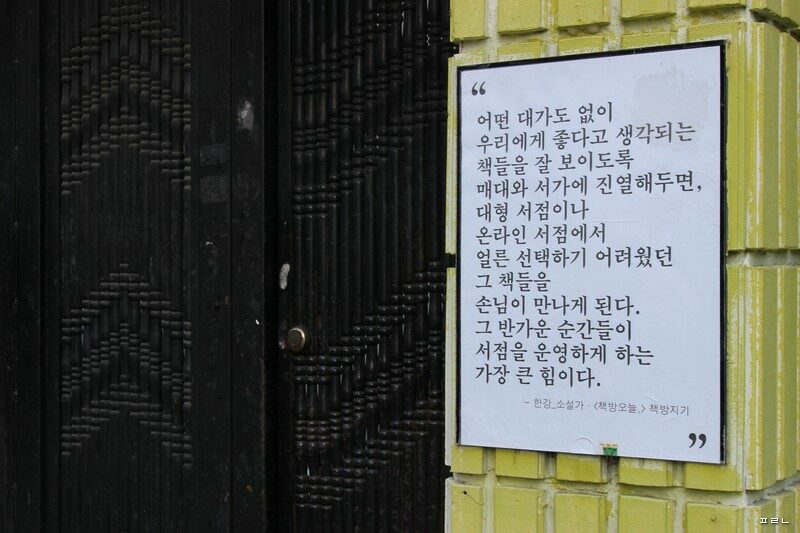 “
어떤 대가도 없이
우리에게 좋다고 생각되는
책들을 잘 보이도록
매대와 서가에 진열해두면,
대형 서점이나
온라인 서점에서
얼른 선택하기 어려웠던
그 책들을
손님이 만나게 된다.
그 반가운 순간들이
서점을 운영하게 하는
가장 큰 힘이다.
- 한강_소설가 · <책방오늘,> 책방지기
”
ㅍㄹㄴ